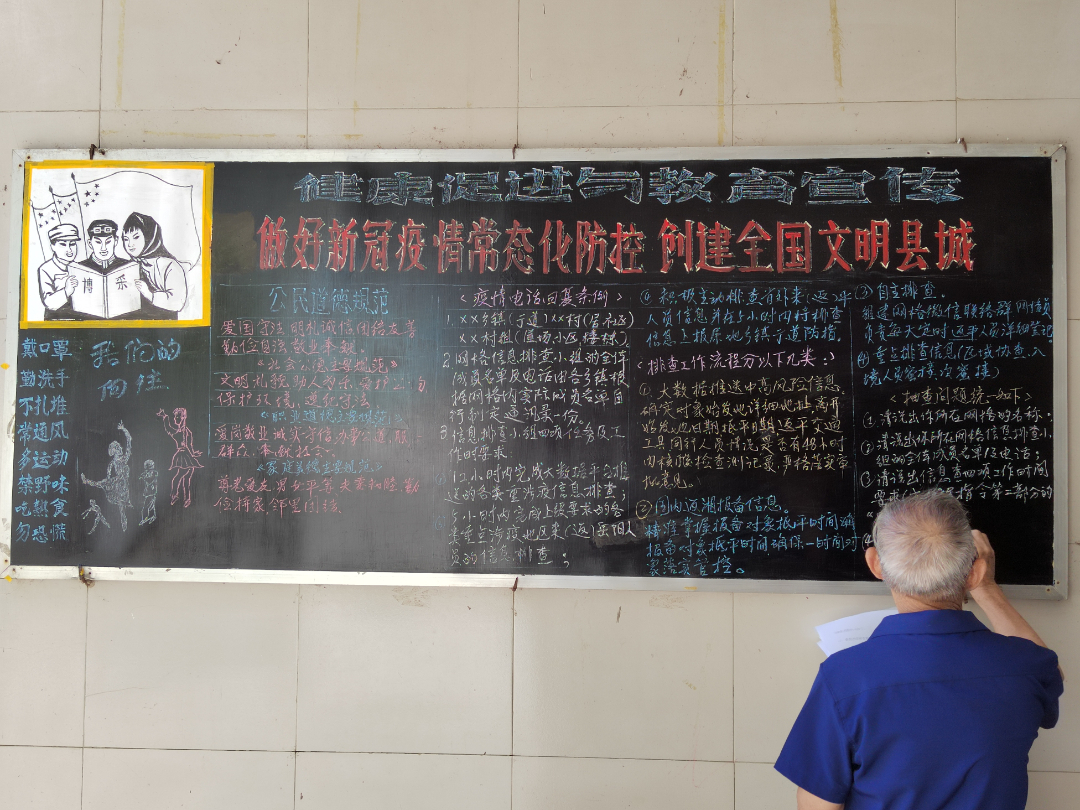 健康促进与教育宣传
做好新冠疫情常态化防控 创建全国文明县城
戴口罩
勤洗手
不扎堆
常通风
多运动
禁野味
吃熟食
勿恐慌
我们的
向往
公民道德规范
爱国守法明礼诚信团结友善
勤俭自强敬业奉献。
《社会公德主要规范》
文明礼貌助人为乐爱护公物
保护环境、遵纪守法
《职业道德主要规范》
爱岗敬业诚实守信办事公道服
群众、奉献社会。
《家庭美德主要规范》
尊老爱幼男女平等夫妻和睦勤
俭持家邻里团结
《疫情电话回复案例》
1、××乡镇(街道)××村(居社区)
××村组(值场小区楼栋)
2、网格信息排查小组的全体
成员名单及电话由各乡镇根
据网格内实际网员名单自
行制定通讯录一份。
3、信息排查小组四项任务及工
作时要求
12小时内完成大数据平台推
送的各类重涉疫信息排查;
员的信息排查;
④积极主动排查省外来(返)平
人员信息并在1小时内将排查
信息上报属地乡镇街道防指。
《排查工作流程分以下九类:》
①、大数据推送中高风险信息、
确定对象始发地详细地址,离开
始发地日期抵平日期返平交通
工具同行人员情况是否有48小时
内核酸检查测记录,
②国内返湘报备信息。
精准掌握报备对象抵平时间确
报备对象抵平时间确保一时间对
象落实管控。
③自主排查。
组建网格微信联络群网格员
负责每天定时返平人员详细登记
④重点排查信息(区域协查、入
境人员管接次密接)
《抽查问题统一如下》
①清说出你所在网格的名称.
②清说出你所在网格信息排查小
组的全体成员名单及电话;
③清说出信息查四项工作时间